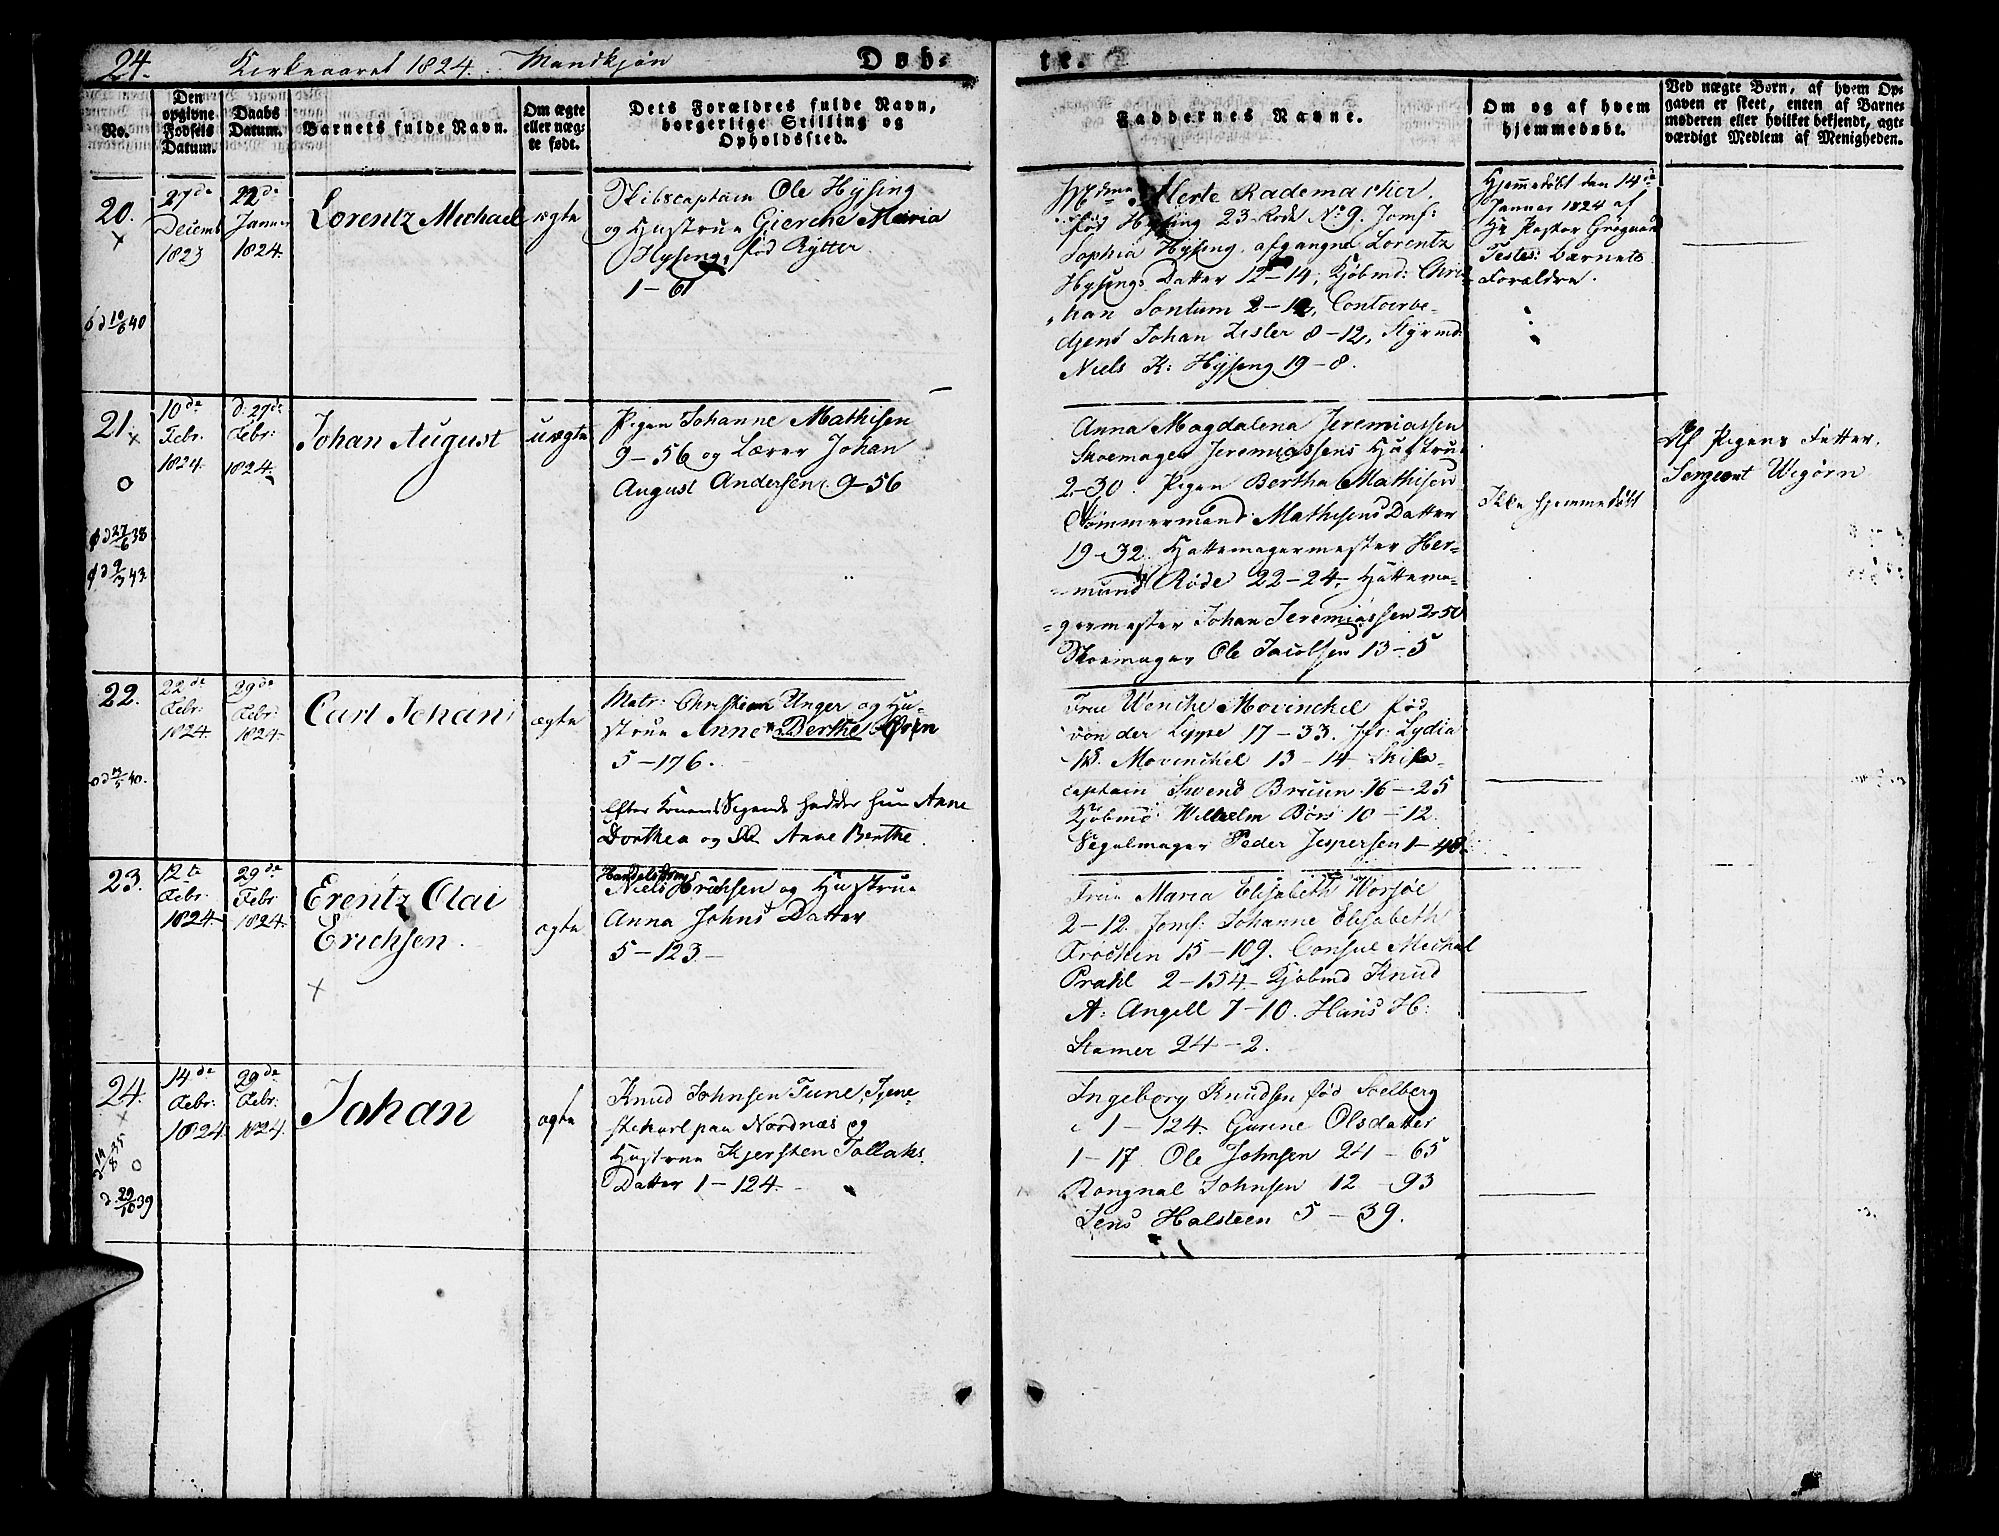 24.
Kirkeaaret 1824. Mandkjøn
Døb-
te.
No.
Den opgivne Fødsels Datum.
Daabs Datum.
Barnets fulde Navn.
Om ægte eller uæg-
te født.
Dets Forældres fulde Navn,
borgerlige Stilling og
Opholdssted.
Faddernes Navne.
Om og af hvem
hjemmedøbt.
Ved uægte Børn, af hvem Op-
gaven er skeet, enten af Barne-
moderen eller hvilket bekjendt, agt-
værdigt Medlem af Menigheden.
20.
×
27de
Decemb
1823
22de
Januar
1824.
Lorentz Michael
ægte
Skibscaptain Ole Hysing
og Hustrue Giertche Maria
Hysing, fød Rytter
1-61
d 10/6 40
Mdme Merte Rademacher,
fød Hysing 23 Rode No 9. Jomf:
Sophia Hysing, afgangne Lorentz
Hysings Datter 12-14, Kjøbmd: Chris-
han Sontum 2-12, Contoirbe-
tjent Johan Zesler 8-12, Styrmd:
Niels K: Hysing 19-8.
Hjemmedøbt den 14de
Januar 1824 af
Hr Pastor
Testes: Barnets
Forældre.
21.
×
o
10de
Febr.
1824.
d: 27de
Febr:
1824.
Johan August
uægte
Pigen Johanne Mathisen
9-56 og Lærer Johan
August Andersen 9-56
d 27/6 38
d 9/3 43.
Anna Magdalena Jeremiassen
Skoemager Jeremiassens Hustrue
2-30. Pigen Bertha Mathisen
Tømmermand Mathisens Datter
19-32. Hattemagermester Her-
mund Røde 22-24, Hattema-
germester Johan Jeremiassen 2-50
Skoemager Ole Jacobsen 13-5
Ikke hjemmedøbt
Af Pigens Fetter,
Sergeant Wegørn
22.
22de
Febr:
1824.
29de
Febr:
1824.
Carl Johan
ægte
Matr: Christian Unger og Hu-
strue Anne Berthe
5-176.
Efter Konens Sigende hedder hun Anne
Dorthea og Anne Berthe.
Frue Wenche Movinckel fød
von der Lippe 17-33. Jfr: Lydia
Movinckel 13-14. Skibs-
captain Swend Bruun 16-25
Kjøbmd: Wilhelm Børs 10-12.
Segelmager Peder Jespersen 1-48.
23.
12te
Febr:
1824
29de
Febr
1824.
Erentz Olai
Erichsen.
×
ægte
Niels Erichsen og Hustrue
Anna Johns Datter
5-123
Frue Maria Elisabeth Worsøe
2-12. Jomf: Johanne Elisabeth
Frøchen 15-109. Consul Michal
Prahl 2-154. Kjøbmd Knud
A: Angell 7-10. Hans H:
Stamer 24-2.
24.
×
o
14de
Febr:
1824.
29de
Febr:
1824.
Johan
ægte
Knud Johnsen Tune, Tjene-
stekarl paa Nordnæs og
Hustrue Kjersten Tollaks
Datter 1-124.
d 14/8 35
d. 29/10 39
Ingeborg Knudsen fød Soelberg
1-124. Gurine Olsdatter
1-17 Ole Johnsen 24-65
Rongnal Johnsen 12-93
Jens Halsteen 5-39.